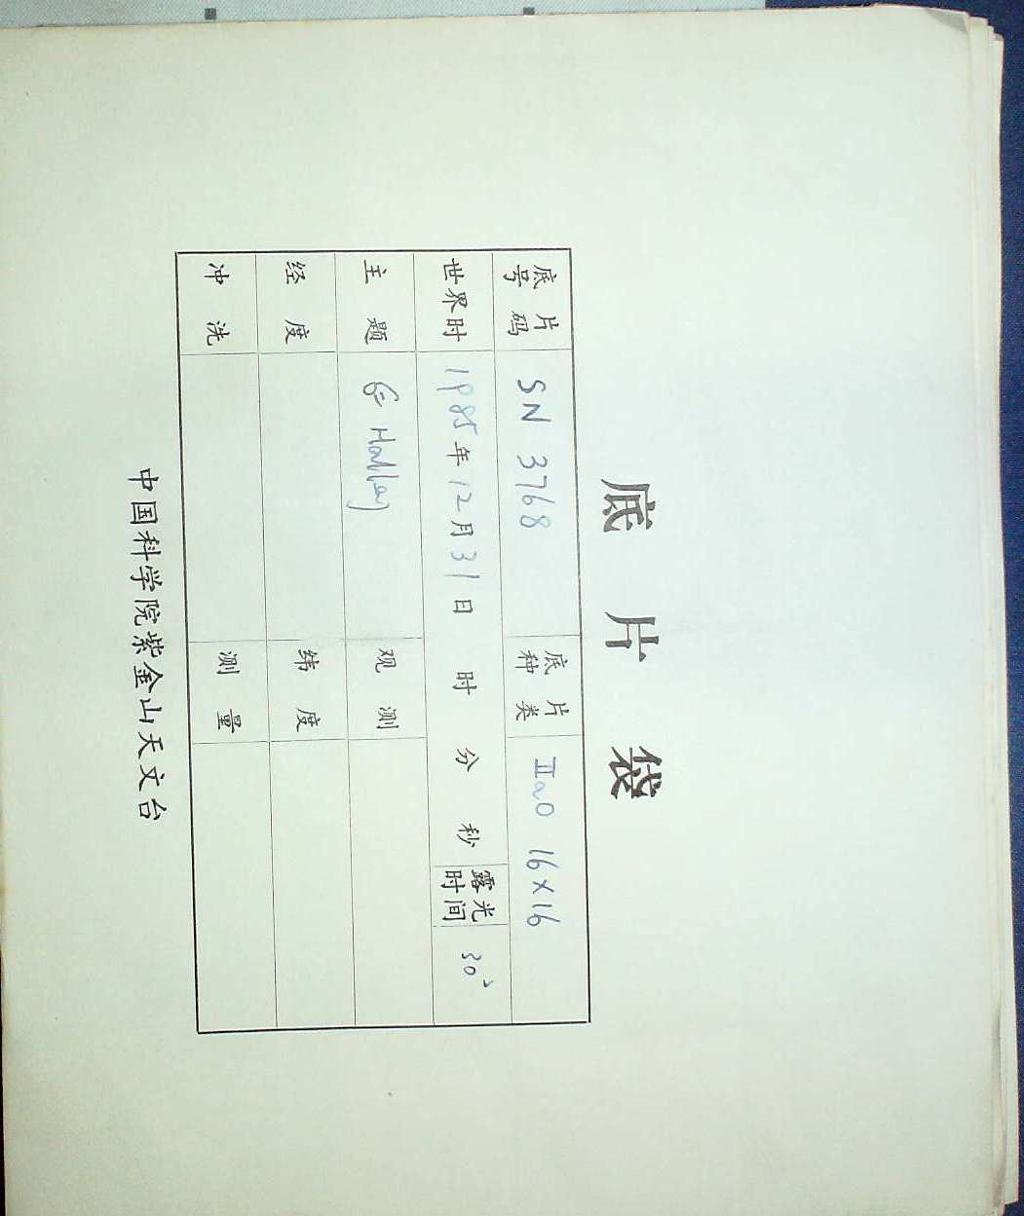 底片袋
底片号码 SN 3768 底片种类 IIaO 16×16
世界时 1985年12月31日 时 分 秒 露光时间 30
主题 Halley 观测
经度 纬度
冲洗 测量
中国科学院紫金山天文台